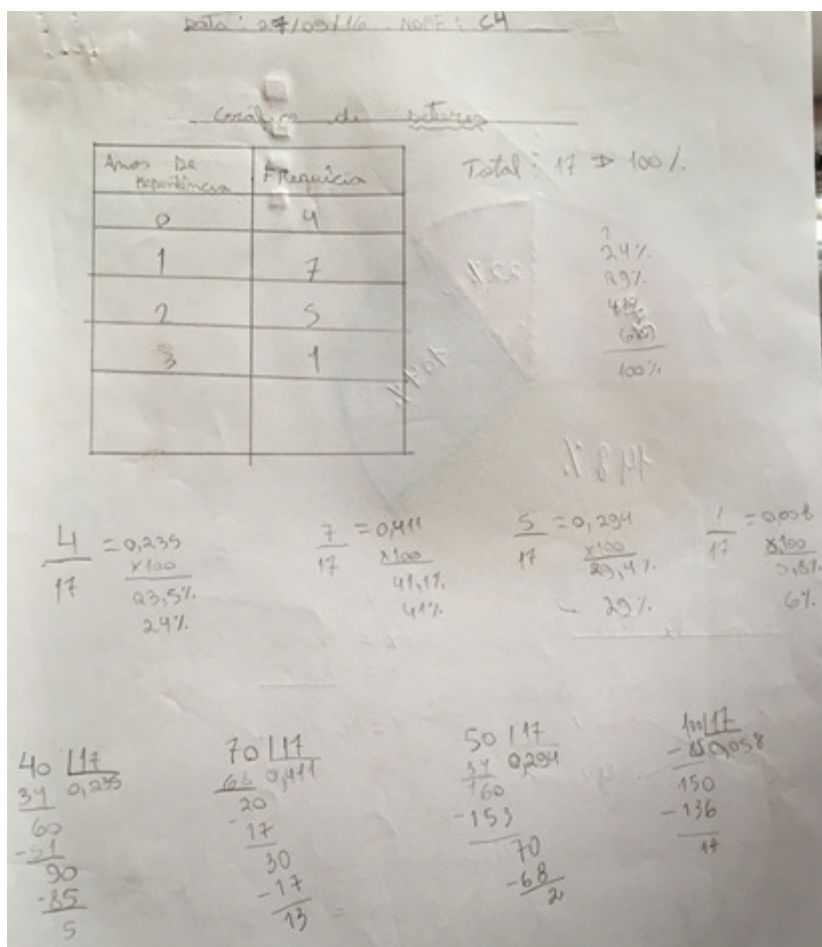 Data: 27/09/16 NOME: C4
Gráfico de setores
Anos De Frequícia
0 4
1 7
2 5
3 1
Total: 17 100%
24%
29%
100%
4/17 = 0,235
x100
23,5%
24%
7/17 = 0,411
x100
41,1%
41%
5/17 = 0,294
x100
29,4%
29%
1/17 = 0,058
x100
5,8%
6%
40 | 17
34 0,235
60
-51
90
-85
5
70 | 17
68 0,411
20
-17
30
-17
13
50 | 17
34 0,294
160
-153
70
-68
2
100 | 17
-85 0,058
150
-136
14